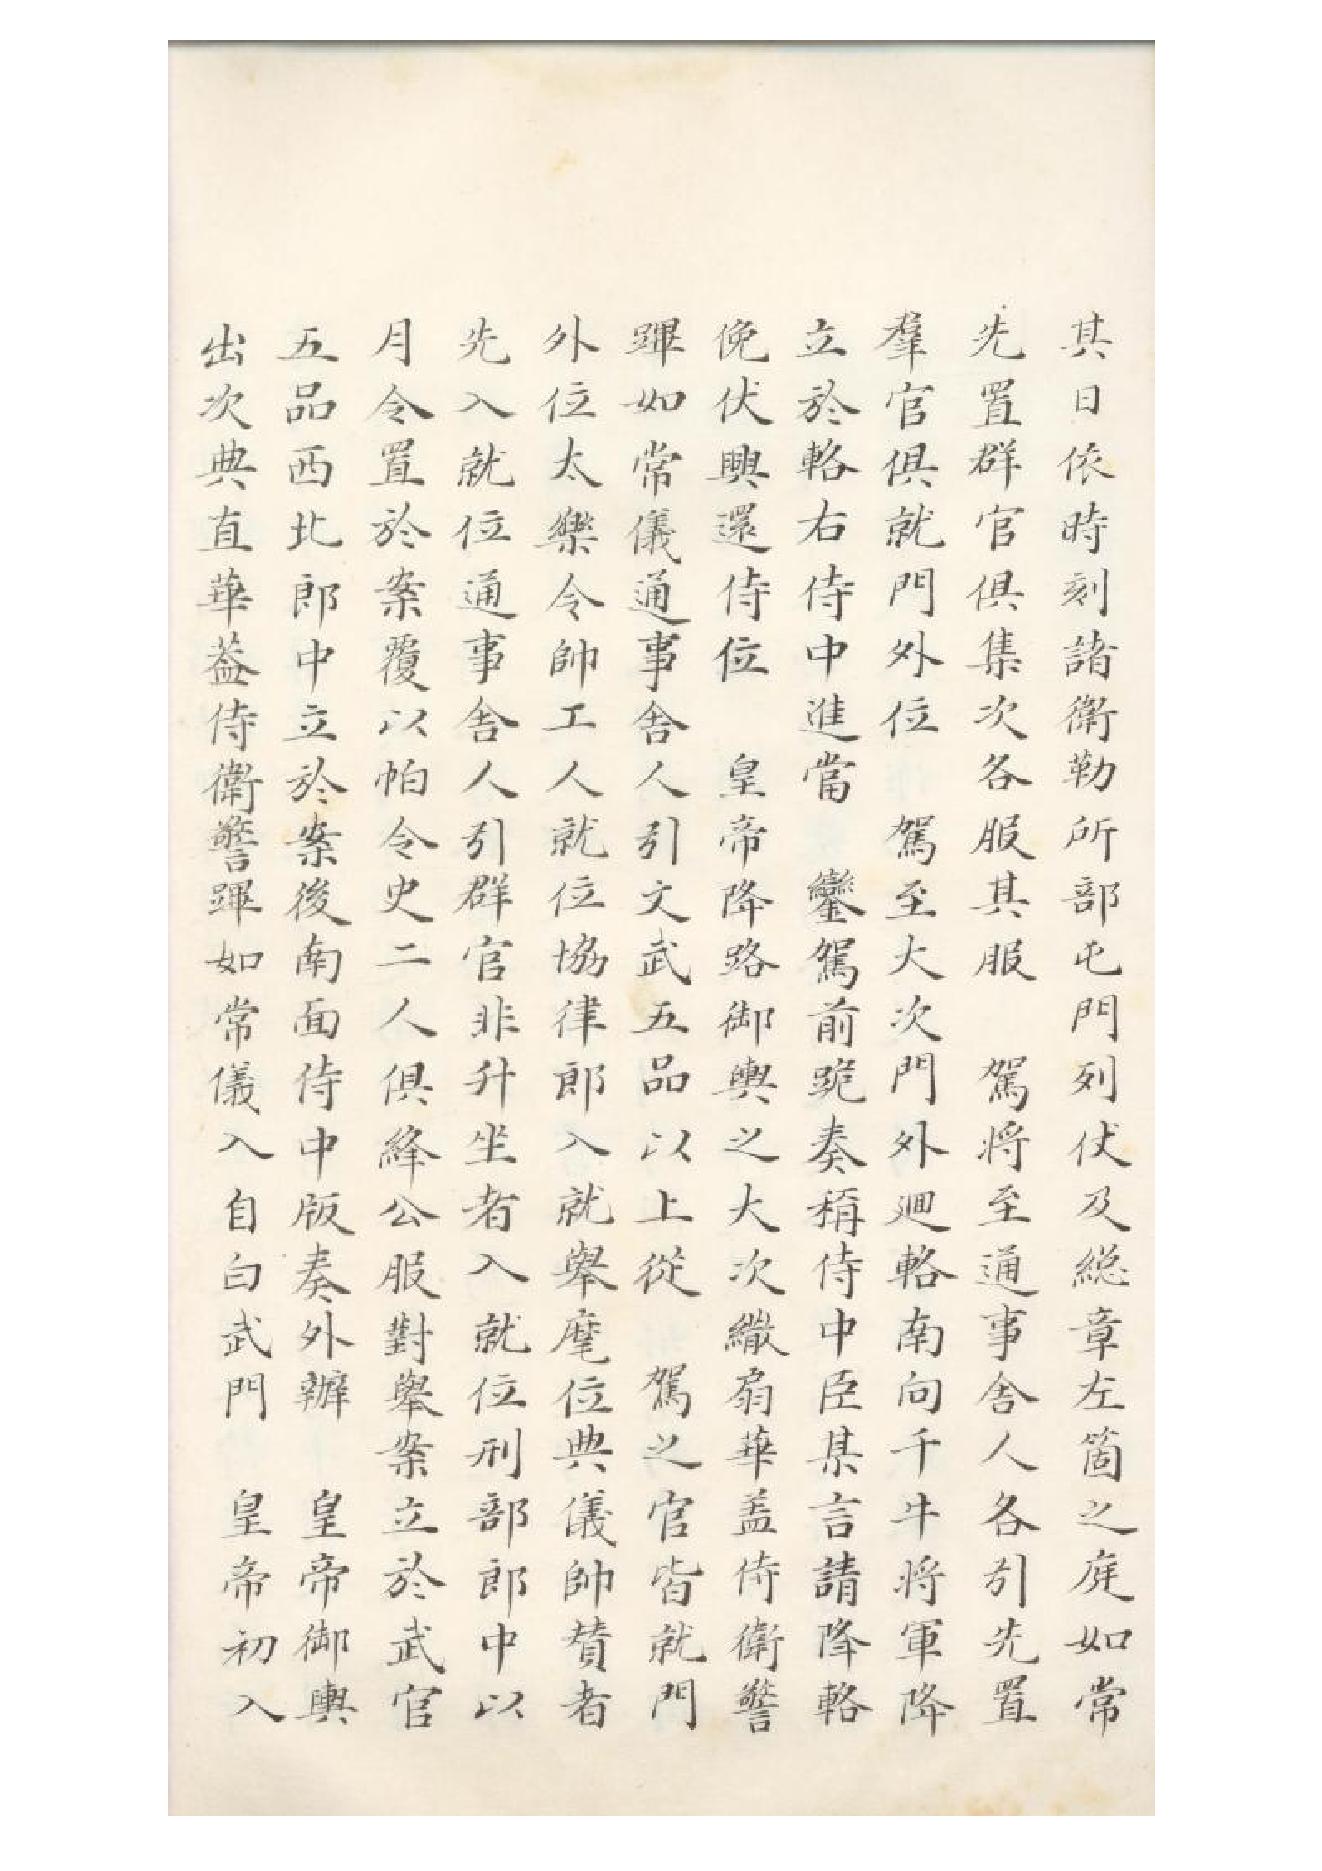 其日依時刻諸衛勒所部屯門列仗及緫章左箇之庭如常
先置群官俱集次各服其服　駕將至通事舍人各引先置
羣官俱就門外位　駕至大次門外廻輅南向千牛將軍降
立於輅右侍中進當　鑾駕前跪奏稱侍中臣某言請降輅
俛伏興還侍位　皇帝降路御輿之大次繖扇華盖侍衛警
蹕如常儀通事舍人引文武五品以上從　駕之官皆就門
外位太樂令帥工人就位協律郎入就舉麾位典儀帥賛者
先入就位通事舍人引群官非升坐者入就位刑部郎中以
月令置於案覆以帕令史二人俱絳公服對舉案立於武官
五品西北郎中立於案後南面侍中版奏外辦　皇帝御輿
出次典直華葢侍衛警蹕如常儀入自白武門　皇帝初入